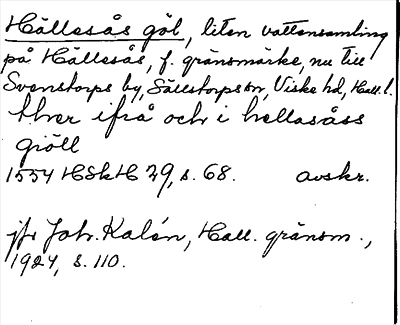 Hällesås göl, liten vattensamling
på Hällesås, f. gränsmärke, nu till
Svenstorps by, Sällstorps sn, Viske hd, Hall. l.
thær ifrå och i hellasåss
giöll
1554 HSkH 29, s. 68. avskr.
jfr Joh. Kalén, Hall. gränsm.,
1924, s. 110.